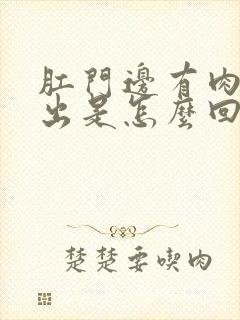 肛門邊有肉
出是怎麼回
楚楚要喫肉